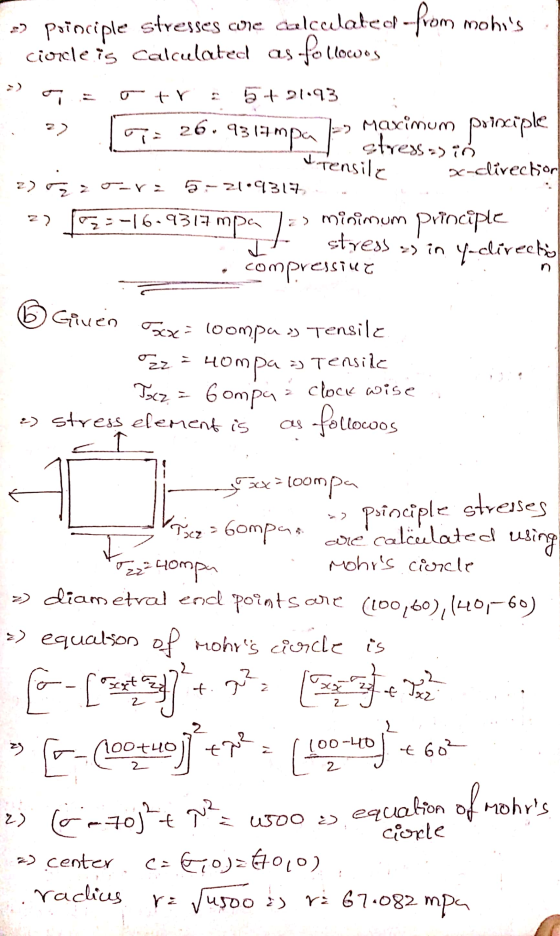 => principle stresses are calculated from mohr's
circle is calculated as followos
=> σ₁ = σ + r = 5 + 21.93
=> σ₁ = 26.9317 mpa => Maximum principle
stress => in
Tensile x-direction
=> σ₂ = σ - r = 5 - 21.9317
=> σ₂ = -16.9317 mpa => minimum principle
stress => in y-direction
compressive
⑥ Given σxx = 100mpa => Tensile
σzz = 40mpa => Tensile
τxz = 60mpa = clock wise
=> stress element is as followos
σxx = 100mpa
τxz = 60mpa
=> principle stresses
are calculated using
σzz = 40mpa
Mohr's circle
=> diametral end points are (100,60), (40,-60)
=> equation of Mohr's circle is
[σ - [(σxx+σzz)/2]]² + τ² = [(σxx-σzz)/2]² + τxz²
=> [σ - (100+40)/2]² + τ² = [(100-40)/2]² + 60²
=> (σ - 70)² + τ² = 4500 => equation of Mohr's
circle
=> center c = (σ,0) = (70,0)
radius r = √4500 => r = 67.082 mpa